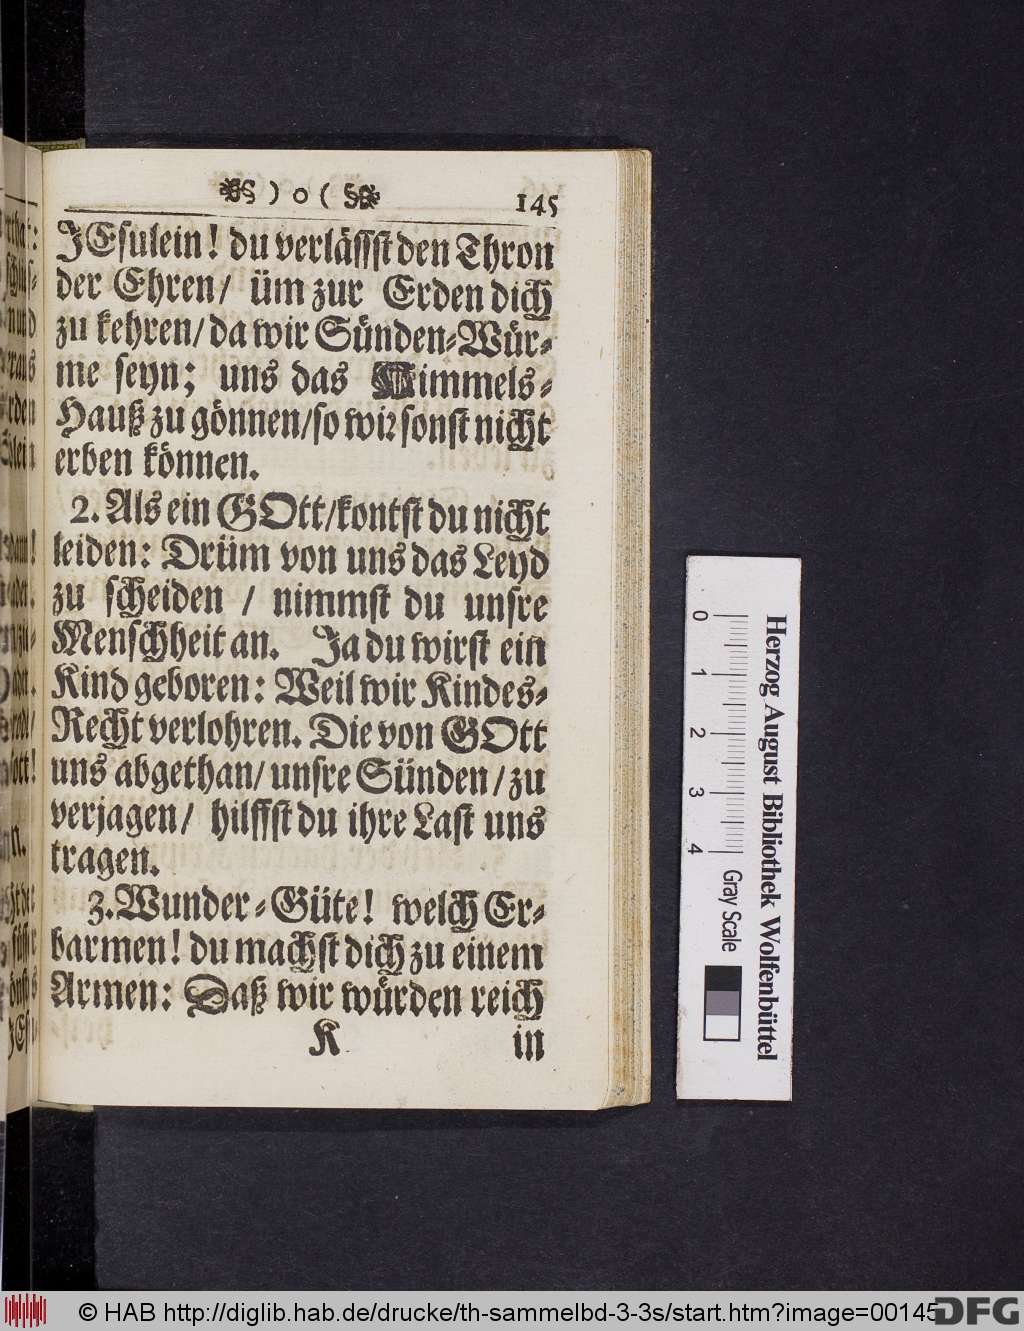 ) o ( 145
JEsulein! du verlässst den Thron
der Ehren/ üm zur Erden dich
zu kehren/ da wir Sünden-Wür-
me seyn; uns das Himmels-
Hauß zu gönnen/ so wir sonst nicht
erben können.
2. Als ein GOtt/ kontst du nicht
leiden: Drüm von uns das Leyd
zu scheiden / nimmst du unsre
Menschheit an. Ja du wirst ein
Kind geboren: Weil wir Kindes-
Recht verlohren. Die von GOtt
uns abgethan/ unsre Sünden/ zu
verjagen/ hilffst du ihre Last uns
tragen.
3. Wunder-Güte! welch Er-
barmen! du machst dich zu einem
Armen: Daß wir würden reich
K in
0 1 2 3 4 Gray Scale
Herzog August Bibliothek Wolfenbüttel
© HAB http://diglib.hab.de/drucke/th-sammelbd-3-3s/start.htm?image=00145
DFG